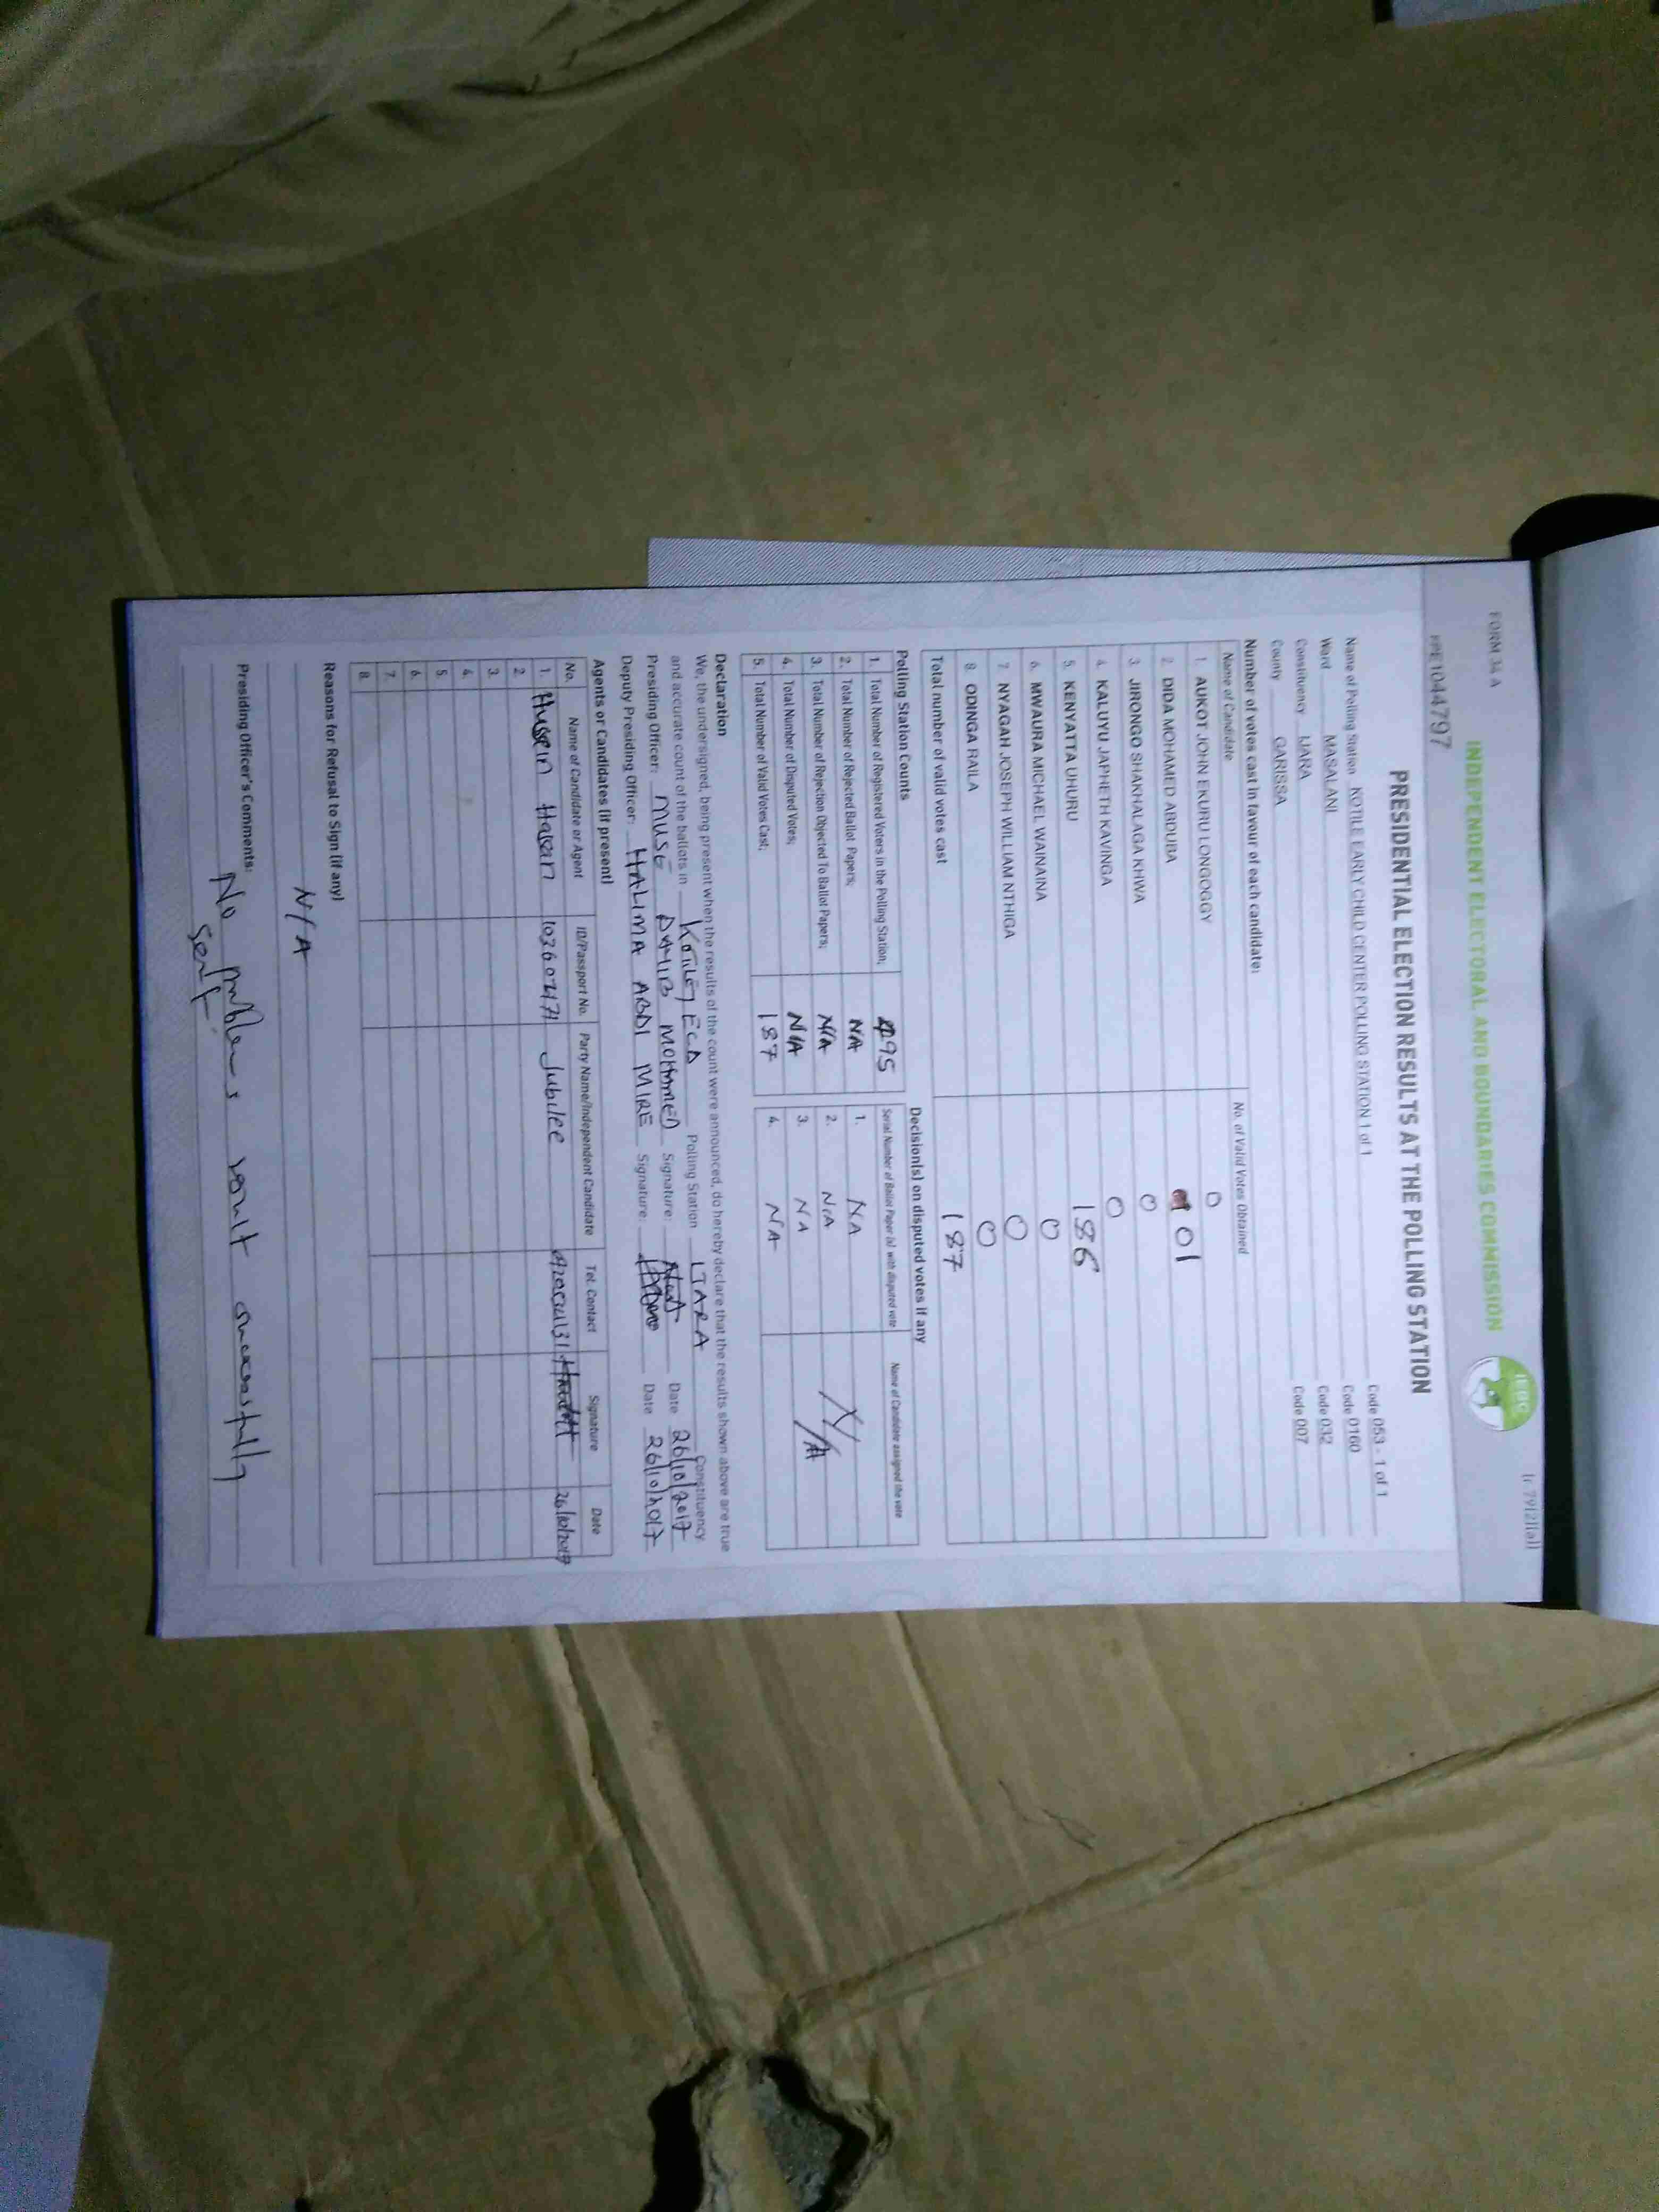 FORM 34 A
(r.79(2)(a))
INDEPENDENT ELECTORAL AND BOUNDARIES COMMISSION
IEBC
PRESIDENTIAL ELECTION RESULTS AT THE POLLING STATION
Name of Polling Station KOTILE EARLY CHILD CENTER POLLING STATION 1 of 1 Code 053 - 1 of 1
Ward MASALANI Code 0160
Constituency IJARA Code 032
County GARISSA Code 007
Number of votes cast in favour of each candidate:
Name of Candidate No. of Valid Votes Obtained
1. AUKOT JOHN EKURU LONGOGGY 0
2. DIDA MOHAMED ABDUBA 01
3. JIRONGO SHAKHALAGA KHWA 0
4. KALUYU JAPHETH KAVINGA 0
5. KENYATTA UHURU 186
6. MWAURA MICHAEL WAINAINA 0
7. NYAGAH JOSEPH WILLIAM NTHIGA 0
8. ODINGA RAILA 0
Total number of valid votes cast 187
Polling Station Counts
1. Total Number of Registered Voters in the Polling Station; 495
2. Total Number of Rejected Ballot Papers; N/A
3. Total Number of Rejection Objected To Ballot Papers; N/A
4. Total Number of Disputed Votes; N/A
5. Total Number of Valid Votes Cast; 187
Decision(s) on disputed votes if any
Serial Number of Ballot Paper (s) with disputed vote Name of Candidate assigned the vote
1. NA
2. N/A
3. NA
4. NA
N/A
Declaration
We, the undersigned, being present when the results of the count were announced, do hereby declare that the results shown above are true
and accurate count of the ballots in ECD Polling Station IJARA Constituency
Presiding Officer: MUSE MOHAMED Signature: Date 26/10/2017
Deputy Presiding Officer: HALIMA ABDI MIRE Signature: Date 26/10/2017
Agents or Candidates (if present)
No. Name of Candidate or Agent ID/Passport No. Party Name/Independent Candidate Tel. Contact Signature Date
1. Hussein Hassan 10360471 Jubilee 26/10/2017
2.
3.
4.
5.
6.
7.
8.
Reasons for Refusal to Sign (if any)
N/A
Presiding Officer's Comments:
No problems result successfully
sent